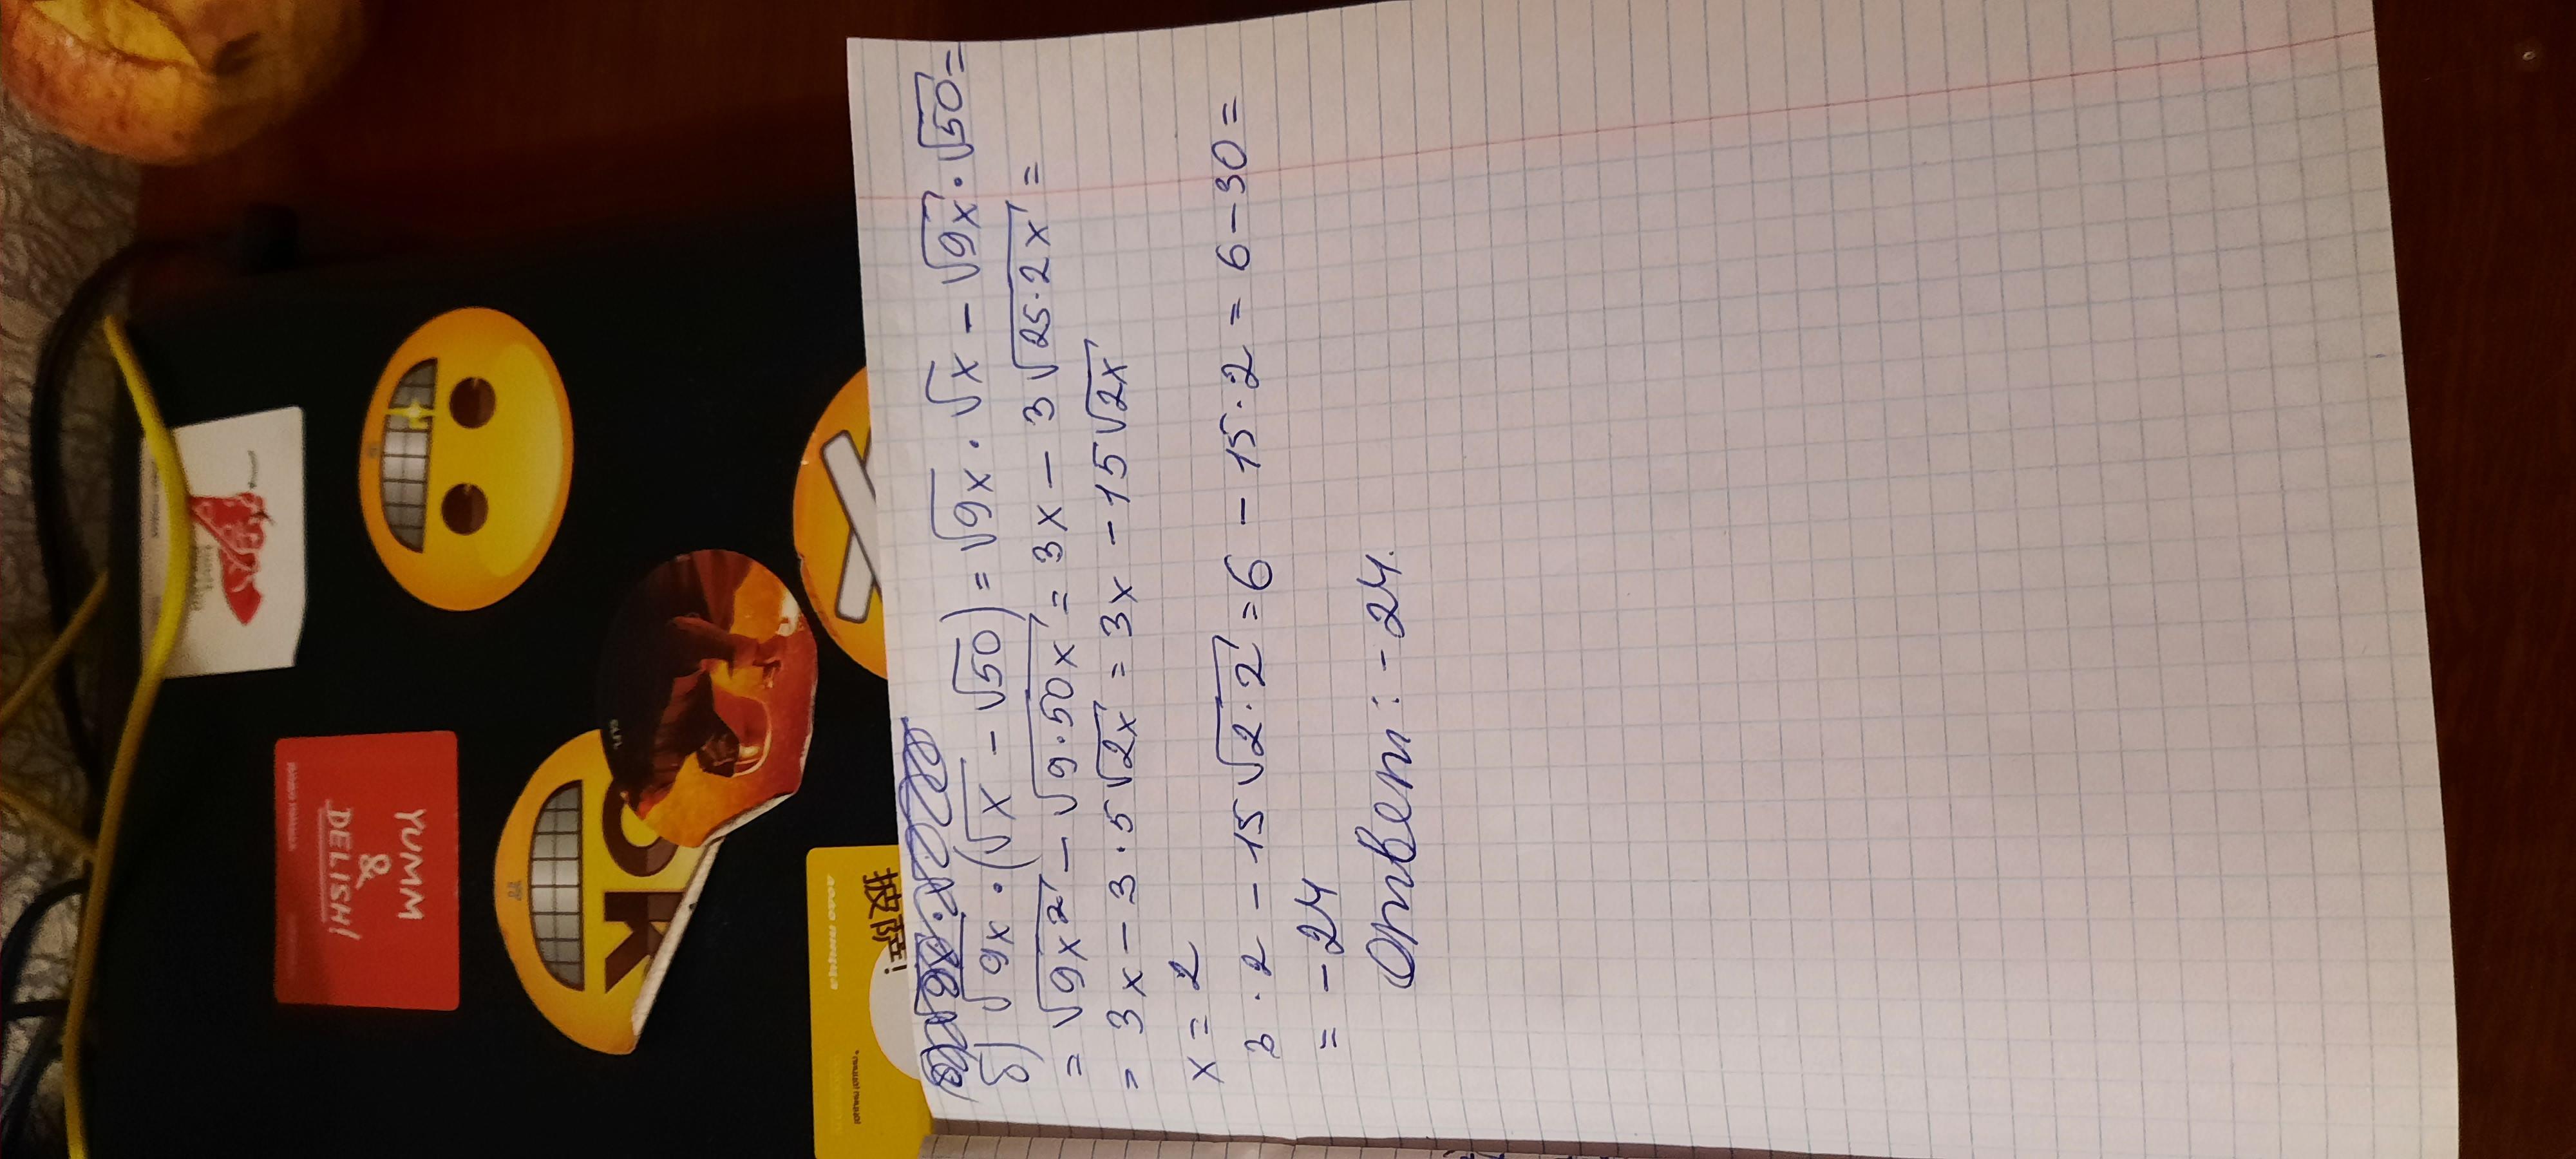 б) √9x · (√x − √50) = √9x · √x − √9x · √50 =
= √9x² − √9·50x = 3x − 3√25·2x =
= 3x − 3·5√2x = 3x − 15√2x
x = 2
3 · 2 − 15√2·2 = 6 − 15·2 = 6 − 30 =
= −24
Ответ: −24.
YUMM
&
DELISH!
OK
披萨!